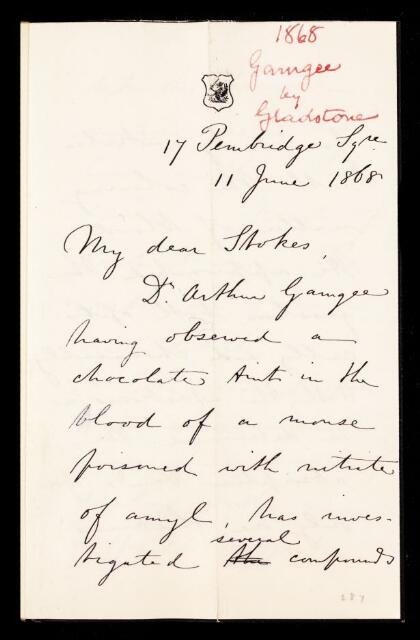 1868
Gamgee
by
Gladstone
17 Pembridge Sqre
11 June 1868
My dear Stokes,
Dr. Arthur Gamgee
having observed a
chocolate tint in the
blood of a mouse
poisoned with nitrite
of amyl, has inves-
several
tigated the compounds
287